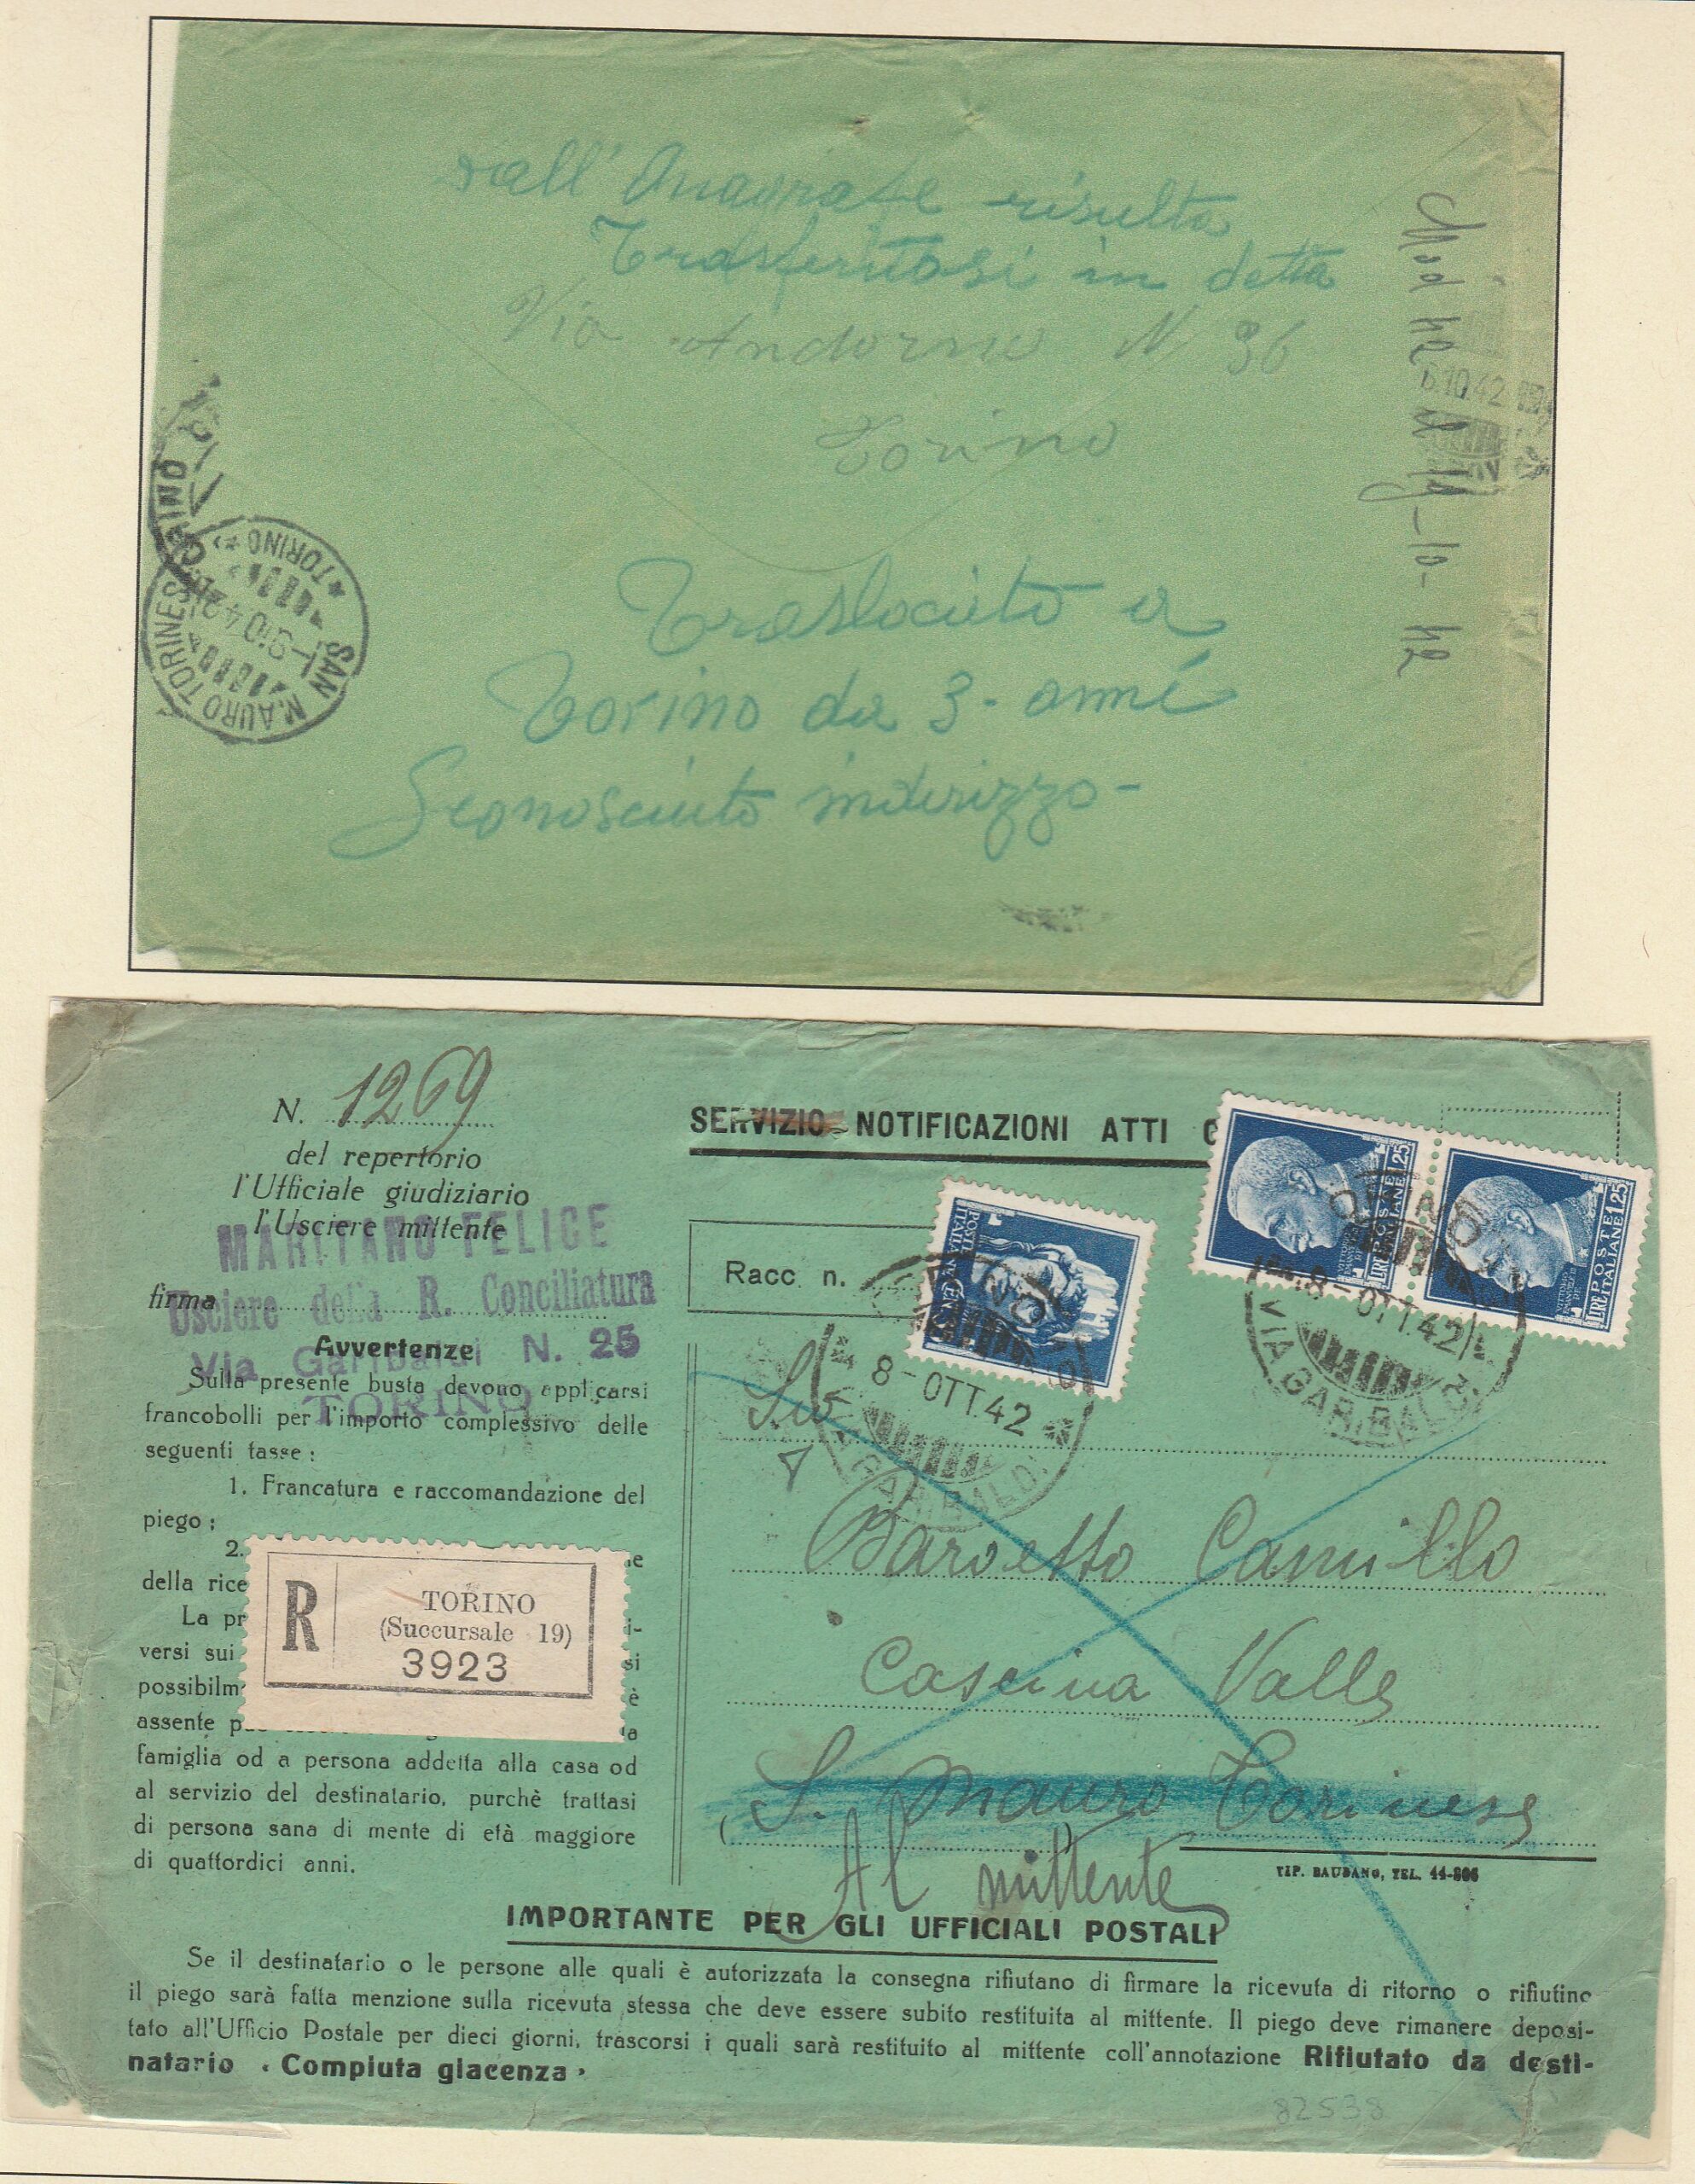 dall'Anagrafe risulta
trasferitosi in detta
Via Andorno N 36
Torino
Traslocato a
Torino da 3- anni
Sconosciuto indirizzo-
-10-42
6.10.42
SAN MAURO TORINESE
* TORINO *
TORINO
N. 1269
del repertorio
l'Ufficiale giudiziario
l'Usciere mittente
MARITANO FELICE
firma
Usciere della R. Conciliatura
Avvertenze
Via Garibaldi N. 25
TORINO
Sulla presente busta devono applicarsi
francobolli per l'importo complessivo delle
seguenti tasse :
1. Francatura e raccomandazione del
piego ;
2.
della rice
La pr
versi sui
possibilm
assente p
famiglia od a persona addetta alla casa od
al servizio del destinatario, purchè trattasi
di persona sana di mente di età maggiore
di quattordici anni.
R
TORINO
(Succursale 19)
3923
SERVIZIO NOTIFICAZIONI ATTI
Racc. n.
POSTE ITALIANE
8-OTT.42
VIA GARIBALDI
LIRE POSTE ITALIANE 1,25
LIRE POSTE ITALIANE 1,25
TORINO
8-OTT.42
VIA GARIBALDI
Baroetto Camillo
Cascina Valle
S. Mauro Torinese
Al mittente
TIP. BAUDANO, TEL. 44-806
IMPORTANTE PER GLI UFFICIALI POSTALI
Se il destinatario o le persone alle quali è autorizzata la consegna rifiutano di firmare la ricevuta di ritorno o rifiutino
il piego sarà fatta menzione sulla ricevuta stessa che deve essere subito restituita al mittente. Il piego deve rimanere deposi-
tato all'Ufficio Postale per dieci giorni, trascorsi i quali sarà restituito al mittente coll'annotazione Rifiutato da desti-
natario « Compiuta giacenza »
82538